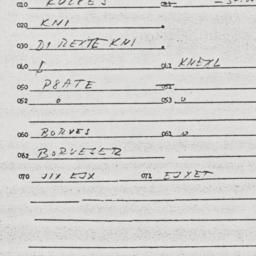 010
020 KNI
030 DI REYTE KNI
040 043 KNEYL
050 PSATE 051
052 0 053 U
060 BORVES 061 U
062 BORVESER
070 JIX EJX 072 EJXET